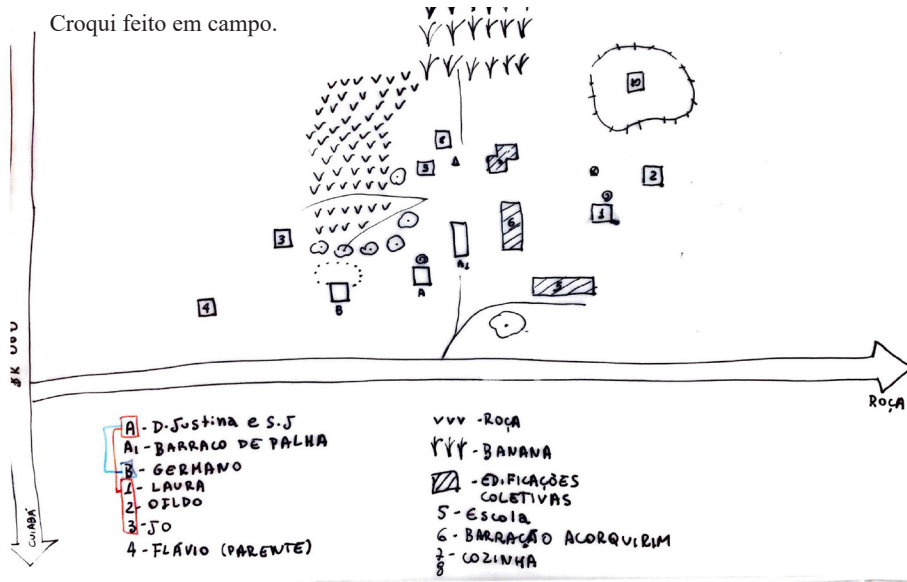 Croqui feito em campo.
10
8
9
2
1
6
3
A1
A
B
5
4
ROÇA
CUIABÁ
A - D. Justina e S. J
A1 - BARRACO DE PALHA
B - GERMANO
1 - LAURA
2 - OILDO
3 - JO
4 - FLÁVIO (PARENTE)
VVV - ROÇA
- BANANA
- EDIFICAÇÕES
COLETIVAS
5 - Escola
6 - BARRAÇÃO ACORQUIRIM
7
8 - COZINHA